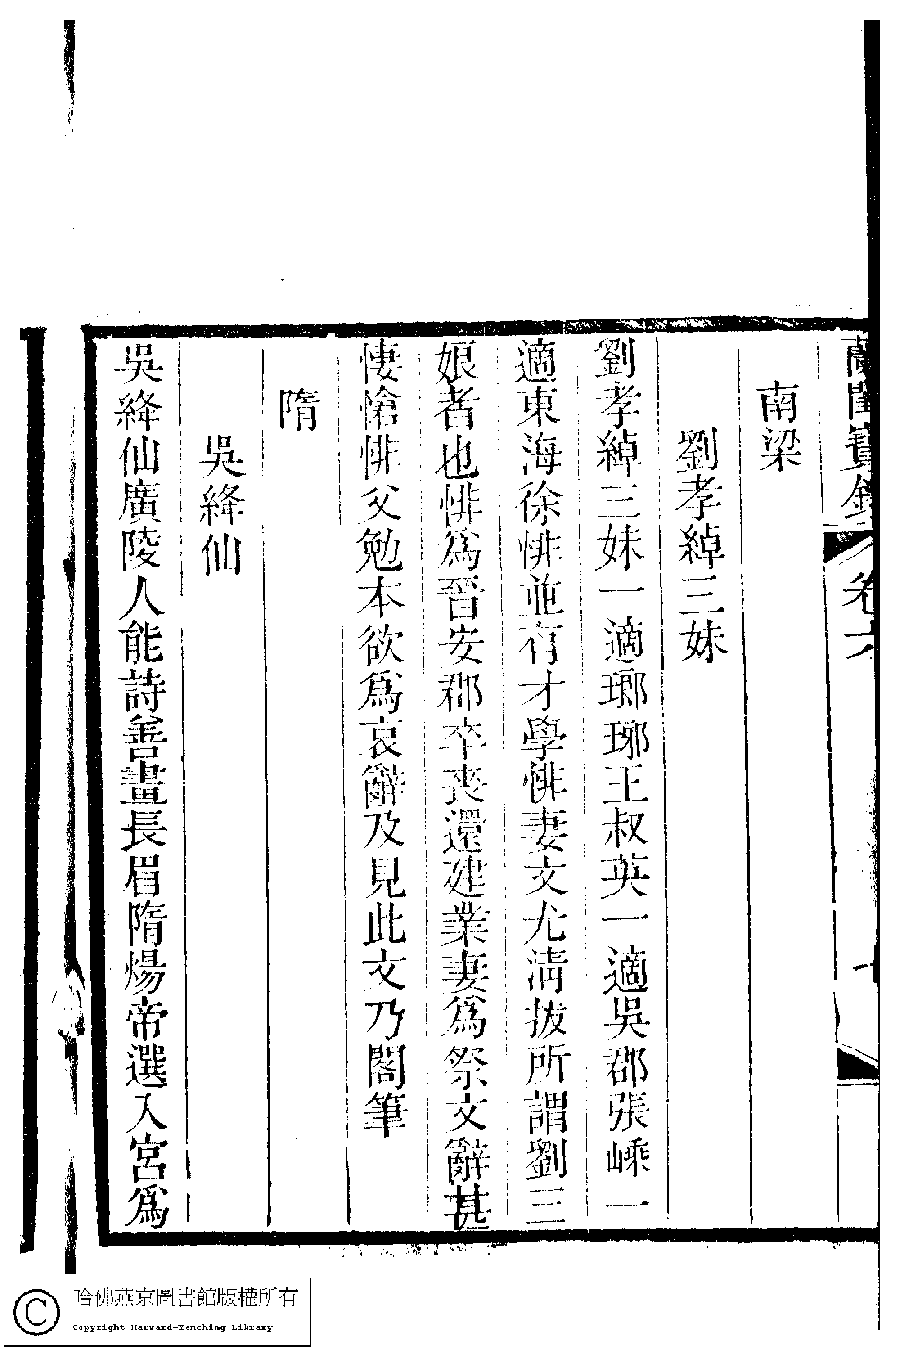 蘭閨寶錄 卷六
南梁
劉孝綽三妹
劉孝綽三妹一適瑯琊王叔英一適吳郡張嵊一
適東海徐悱並有才學悱妻文尤淸拔所謂劉三
娘者也悱爲晉安郡卒喪還建業妻爲祭文辭甚
悽愴悱父勉本欲爲哀辭及見此文乃閣筆
隋
吳絳仙
吳絳仙廣陵人能詩善畫長眉隋煬帝選入宮爲
哈佛燕京圖書館版權所有
Copyright Harvard-Yenching Library